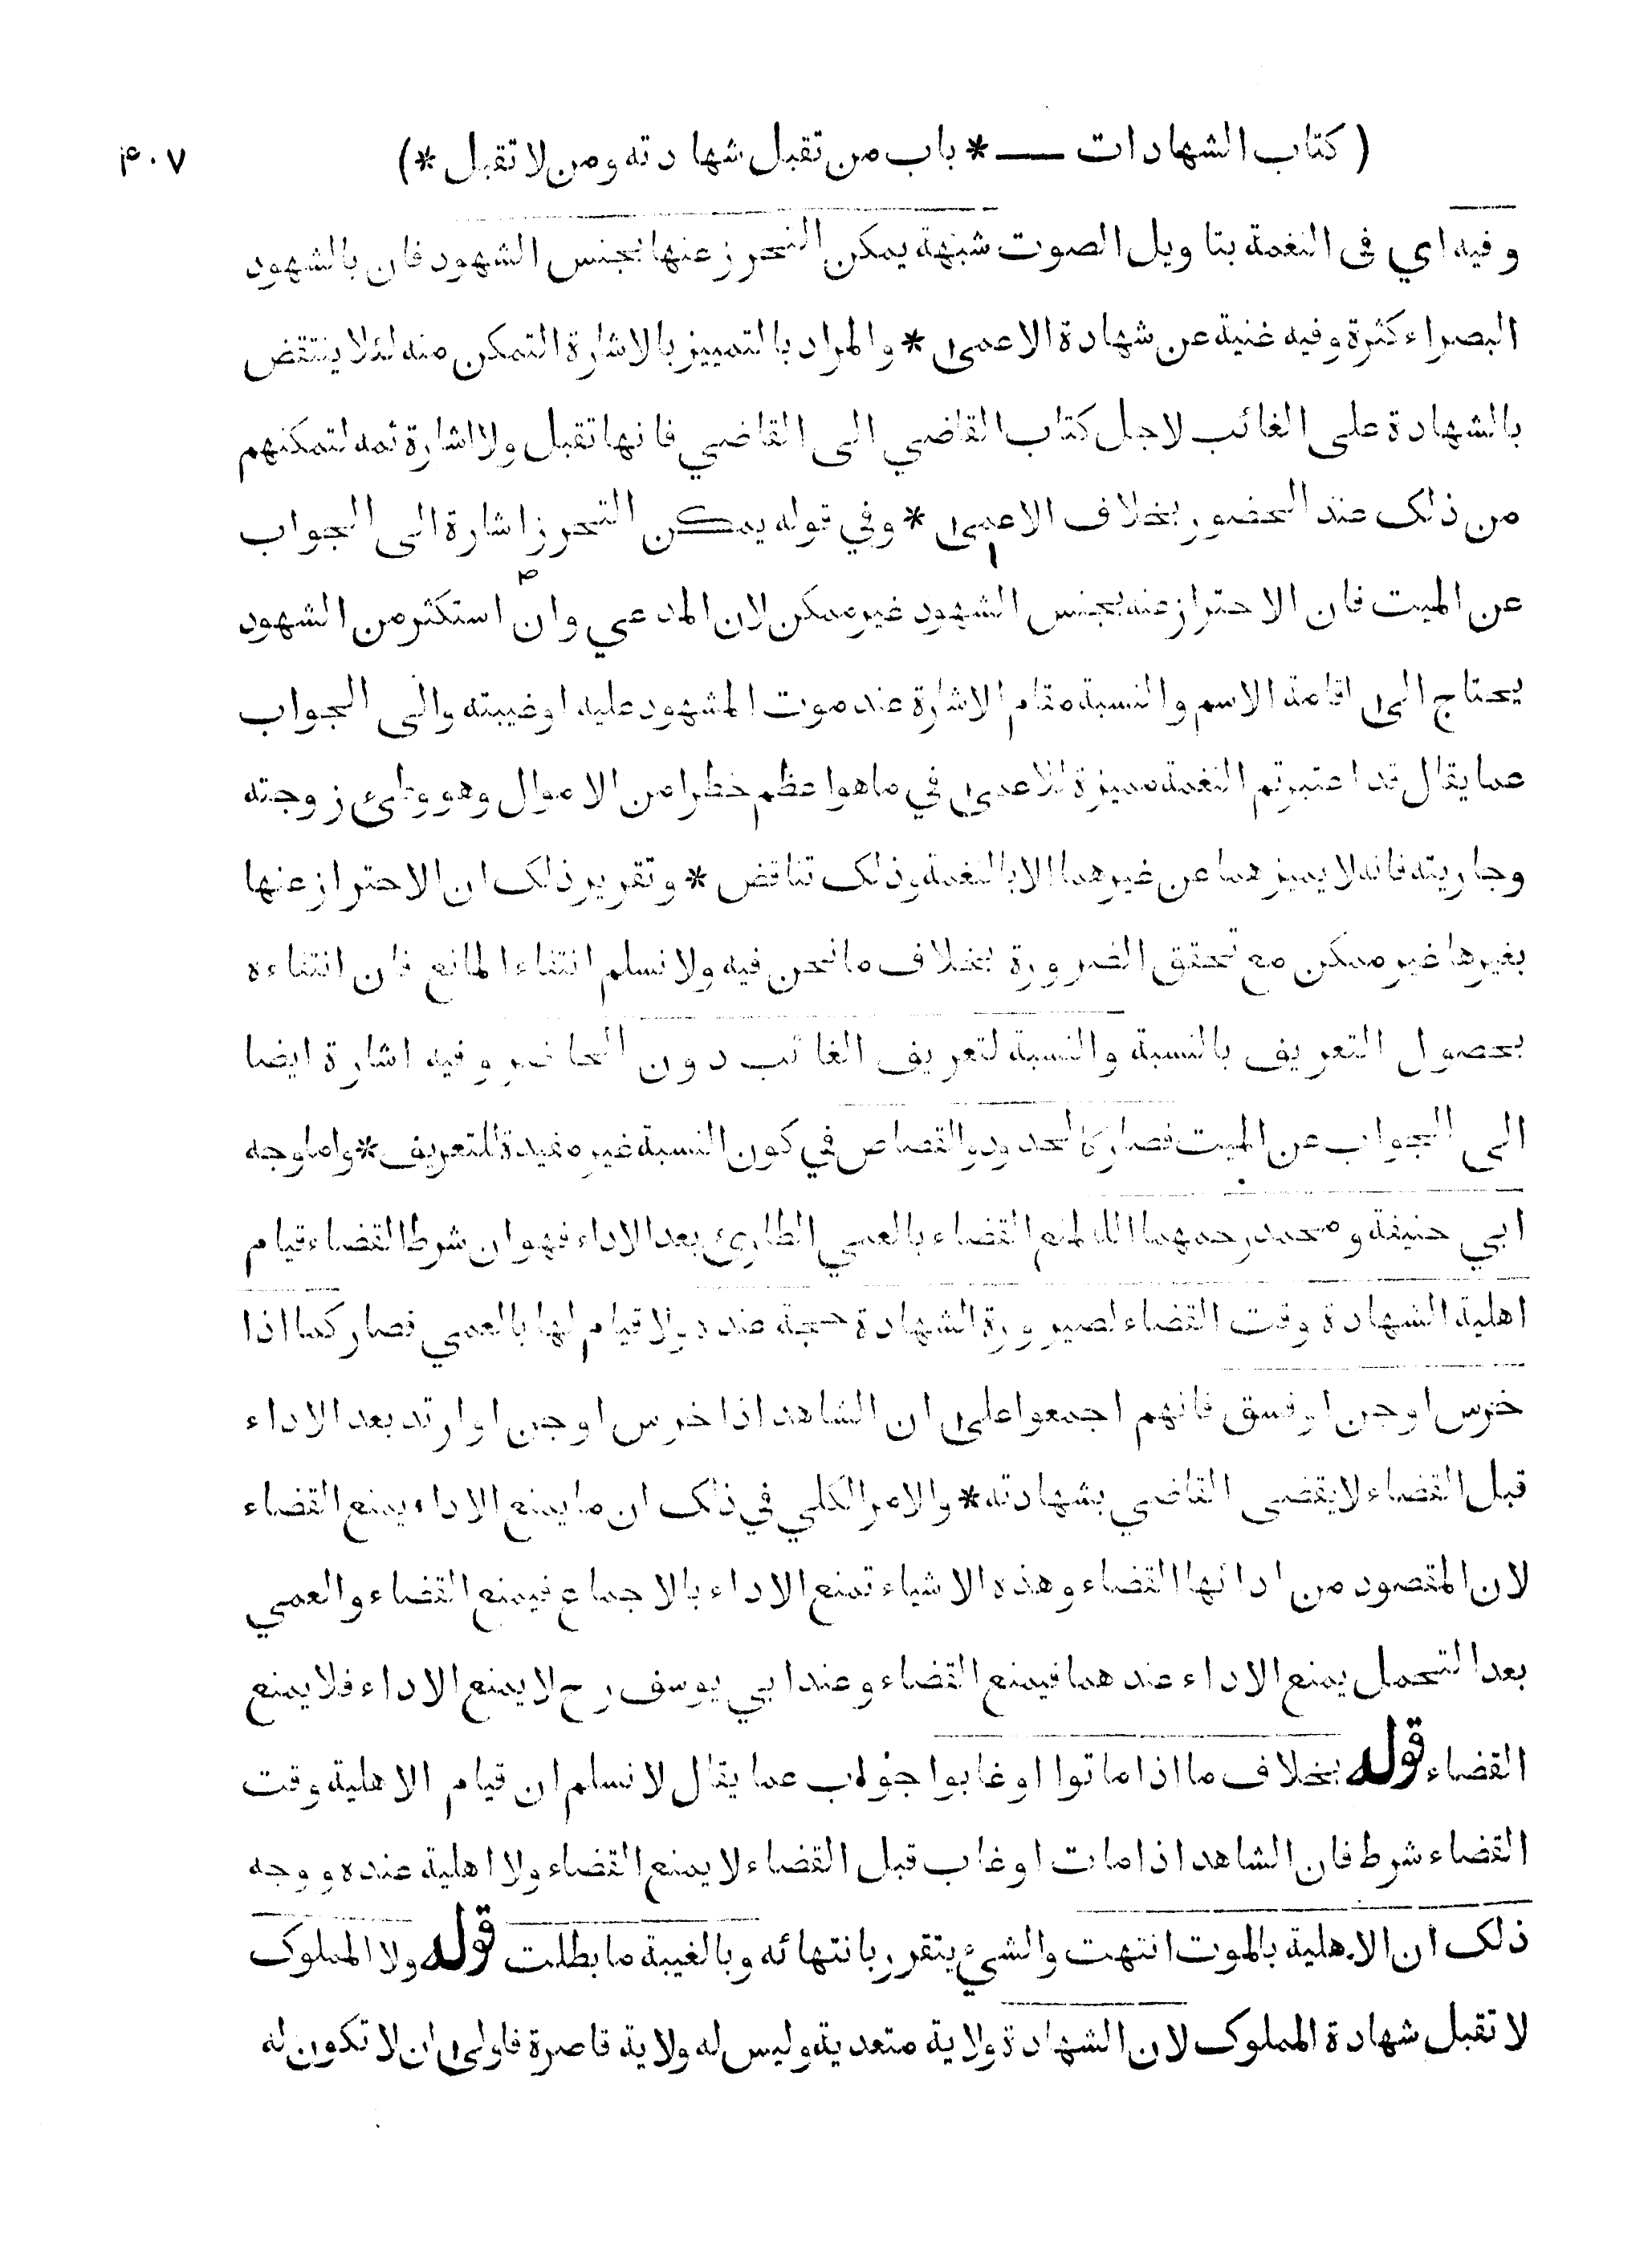 ( كتاب الشهادات — * باب من تقبل شهادته ومن لا تقبل * ) ۴۰۷
وفيه اي فى النغمة بتاويل الصوت شبهة يمكن التحرز عنها بجنس الشهود فان بالشهود
البصراء كثرة وفيه غنية عن شهادة الاعمى * والمراد بالتمييز بالاشارة التمكن منه لئلا ينتقض
بالشهادة على الغائب لاجل كتاب القاضي الى القاضي فانها تقبل ولا اشارة ثمه لتمكنهم
من ذلك عند الحضور بخلاف الاعمى * وفي قوله يمكن التحرز اشارة الى الجواب
عن الميت فان الاحتراز عنه بجنس الشهود غير ممكن لان المدعي وان استكثر من الشهود
يحتاج الى اقامة الاسم والنسبة مقام الاشارة عند موت المشهود عليه او غيبته والى الجواب
عما يقال قد اعتبرتم النغمة مميزة للاعمى في ما هو اعظم خطرا من الاموال وهو وطئ زوجته
وجاريته فانه لا يميزهما عن غيرهما الا بالنغمة وذلك تناقض * وتقرير ذلك ان الاحتراز عنها
بغيرها غير ممكن مع تحقق الضرورة بخلاف ما نحن فيه ولا نسلم انتفاء المانع فان انتفاءه
بحصول التعريف بالنسبة والنسبة لتعريف الغائب دون الحاضر وفيه اشارة ايضا
الى الجواب عن الميت فصار كالحدود والقصاص في كون النسبة غير مفيدة للتعريف * واما وجه
ابي حنيفة ومحمد رحمهما الله لمنع القضاء بالعمي الطاري بعد الاداء فهو ان شرط القضاء قيام
اهلية الشهادة وقت القضاء لصيرورة الشهادة حجة عنده ولا قيام لها بالعمي فصار كما اذا
خرس او جن او فسق فانهم اجمعوا على ان الشاهد اذا خرس او جن او ارتد بعد الاداء
قبل القضاء لا يقضى القاضي بشهادته * والامر الكلي في ذلك ان ما يمنع الاداء يمنع القضاء
لان المقصود من ادائها القضاء وهذه الاشياء تمنع الاداء بالاجماع فيمنع القضاء والعمي
بعد التحمل يمنع الاداء عندهما فيمنع القضاء وعند ابي يوسف رح لا يمنع الاداء فلا يمنع
القضاء قوله بخلاف ما اذا ماتوا او غابوا جواب عما يقال لا نسلم ان قيام الاهلية وقت
القضاء شرط فان الشاهد اذا مات او غاب قبل القضاء لا يمنع القضاء ولا اهلية عنده ووجه
ذلك ان الاهلية بالموت انتهت والشيء يتقرر بانتهائه وبالغيبة ما بطلت قوله ولا المملوك
لا تقبل شهادة المملوك لان الشهادة ولاية متعدية وليس له ولاية قاصرة فاولى ان لا تكون له